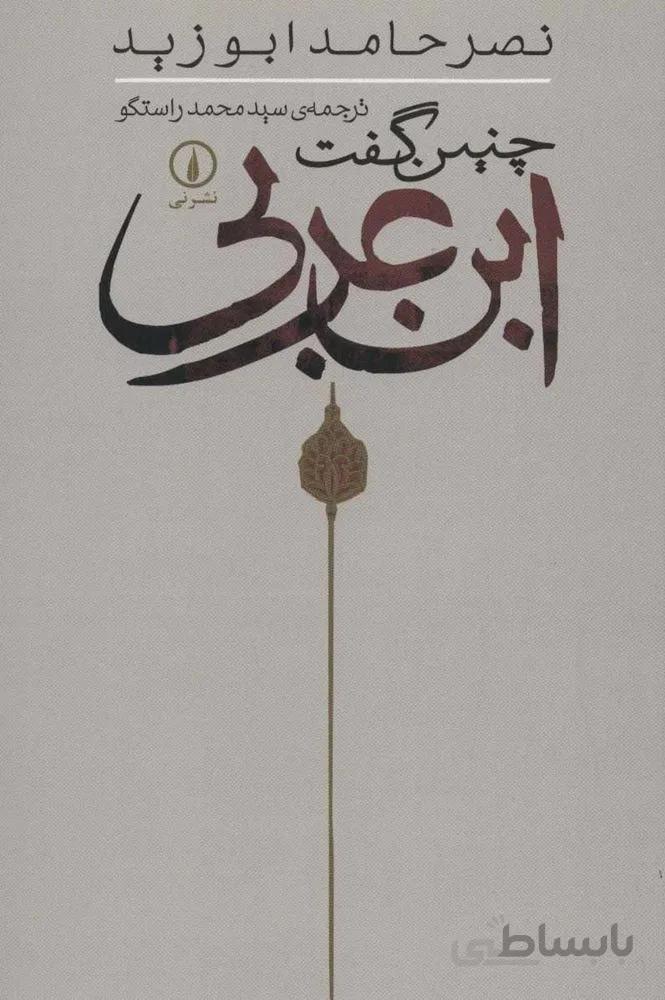 نصر حامد ابوزید
ترجمه‌ی سید محمد راستگو
چنین گفت
ابن عربی
نشر نی
بابساطی